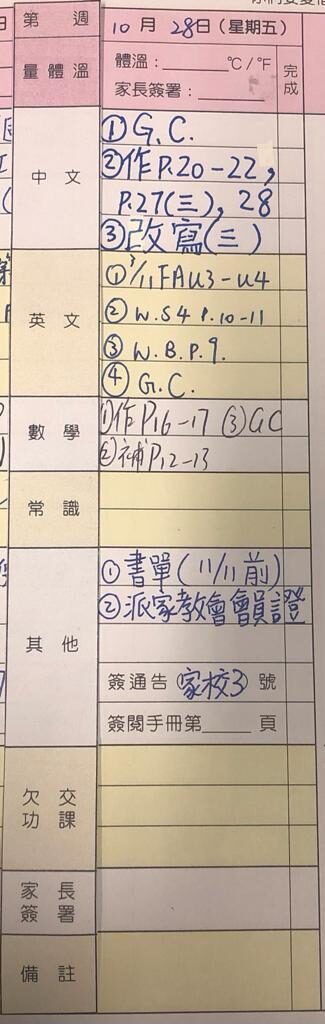 第 週
10 月 28 日 (星期五)
量體溫
體溫：______°C/°F
家長簽署：______
完成
中 文
① G.C.
② 作 P.20-22,
P.27(三), 28
③ 改寫(三)
英 文
① 3/11 FA U3-U4
② W.S4 P.10-11
③ W.B.P.9.
④ G.C.
數 學
① 作 P16-17 ③ GC
② 補 P12-13
常 識
其 他
① 書單 (11/11 前)
② 派家教會會員證
簽通告 家校3 號
簽閱手冊第____頁
欠 交
功 課
家 長
簽 署
備 註